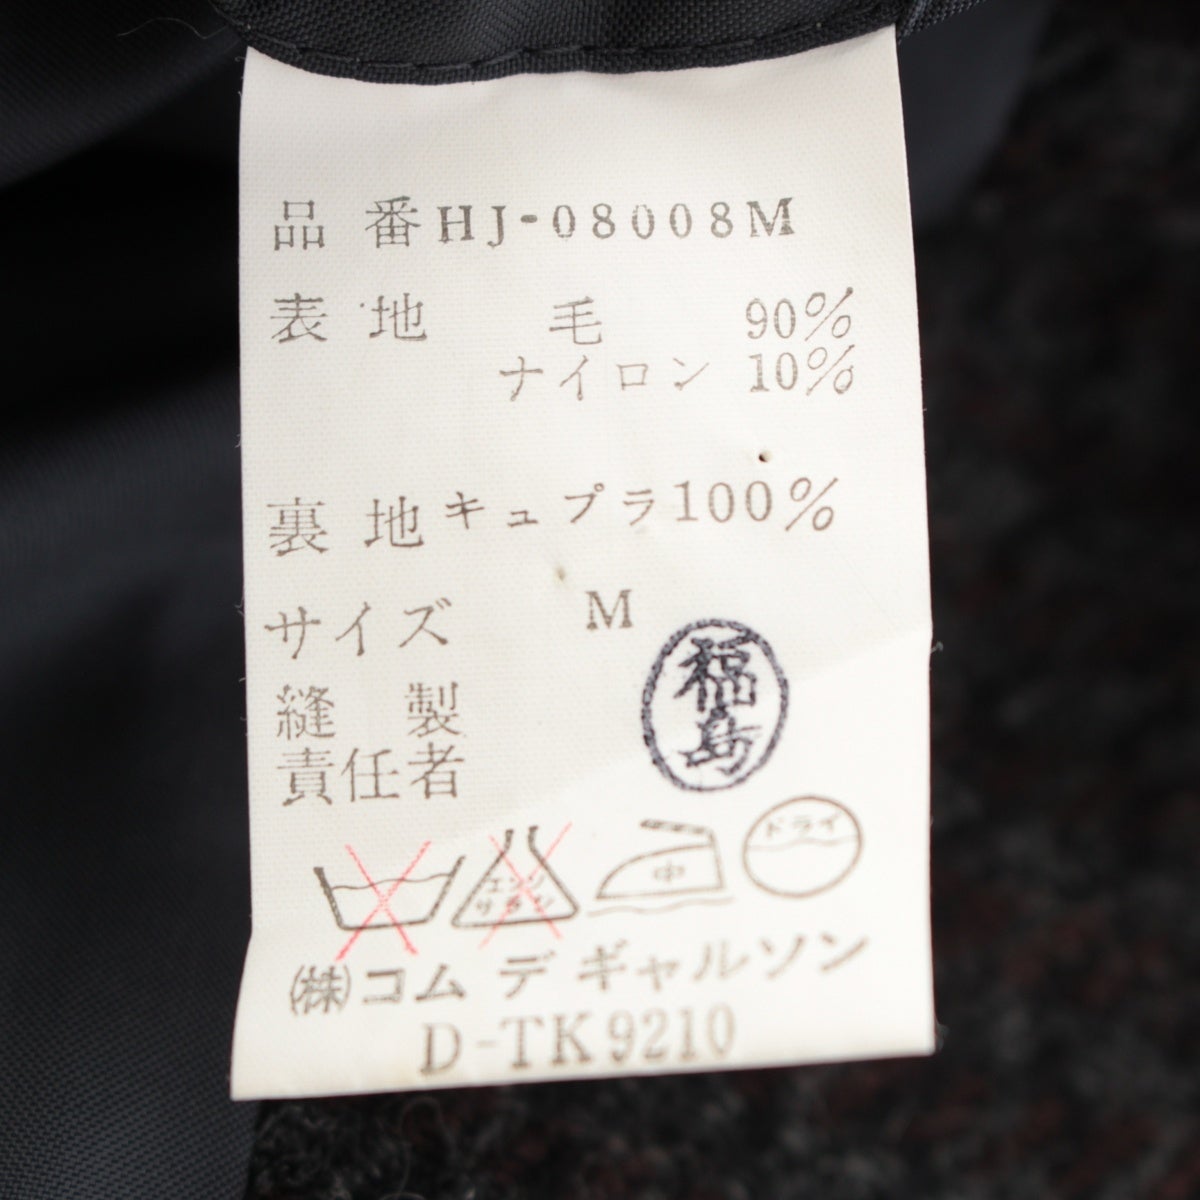 品 番 HJ-08008M
表 地 毛 90%
ナイロン 10%
裏 地 キュプラ 100%
サイズ M
縫 製
責任者
福島
エンソ
サラシ
中
ドライ
㈱コム デ ギャルソン
D-TK9210